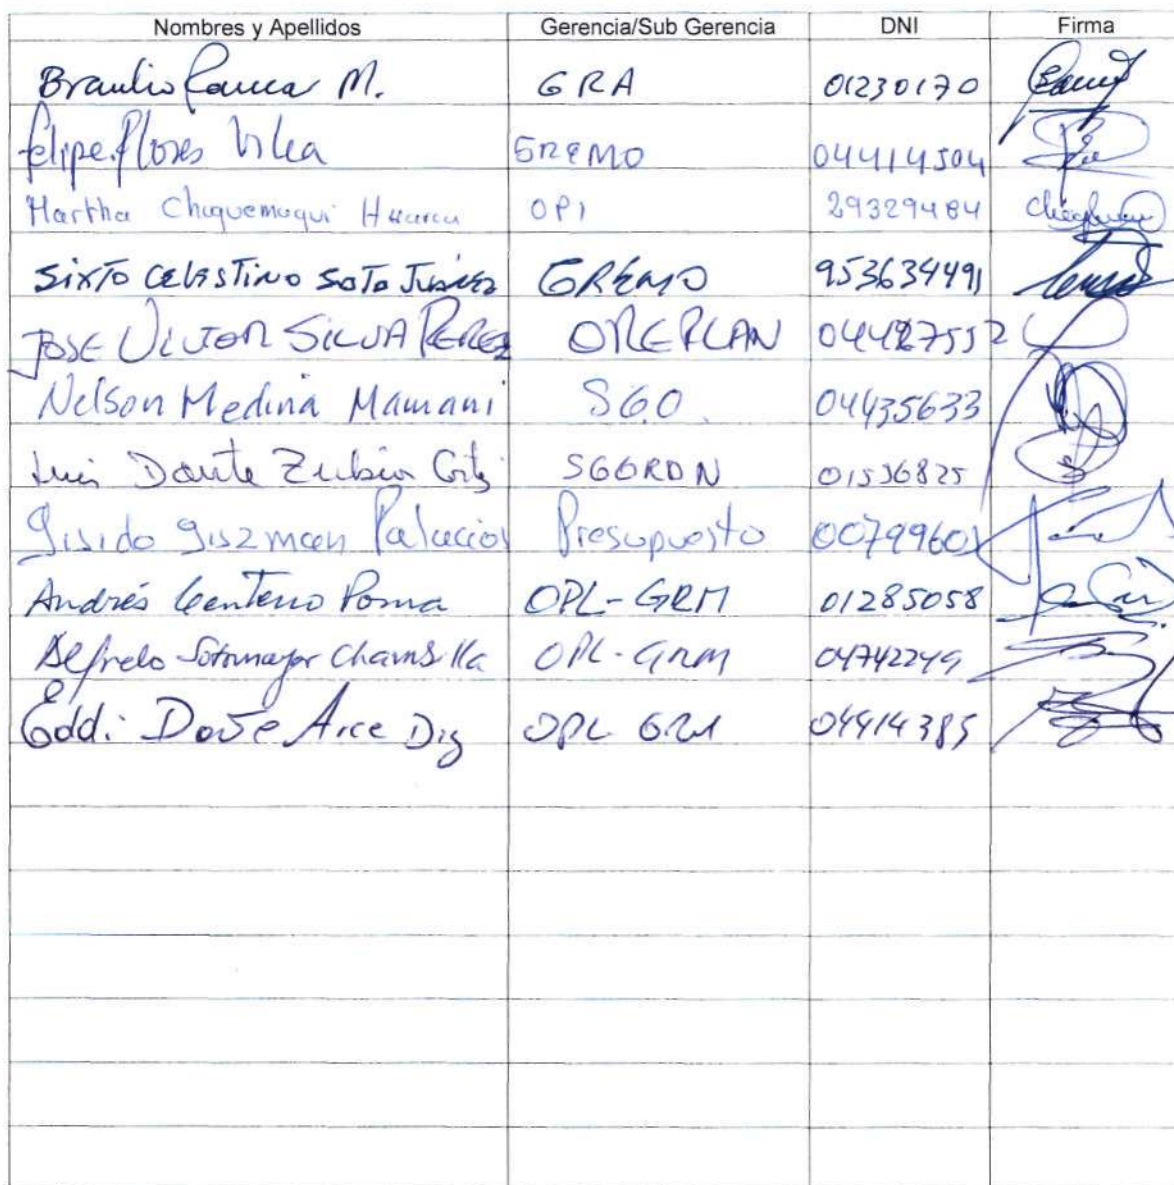 Nombres y Apellidos Gerencia/Sub Gerencia DNI Firma
Braulio Cauca M. GRA 01230170
Felipe Flores Vilca GREMO 04414504
Martha Choquemaqui Huarcu OPI 29329484
SIXTO CELESTINO SOTO GREMO 953634491
JOSE VICTOR SILVA PEREZ OREPLAN
Nelson Medina Mamani SGO. 04435633
Luis Dante Zubia SGGRDN 01536825
Guzman Palacios Presupuesto
Andrés Centeno Poma OPL-GRM 01285058
Alfredo Sotomayor OPL-GRM 04742249
Eddi Arce OPL GRM 04414385